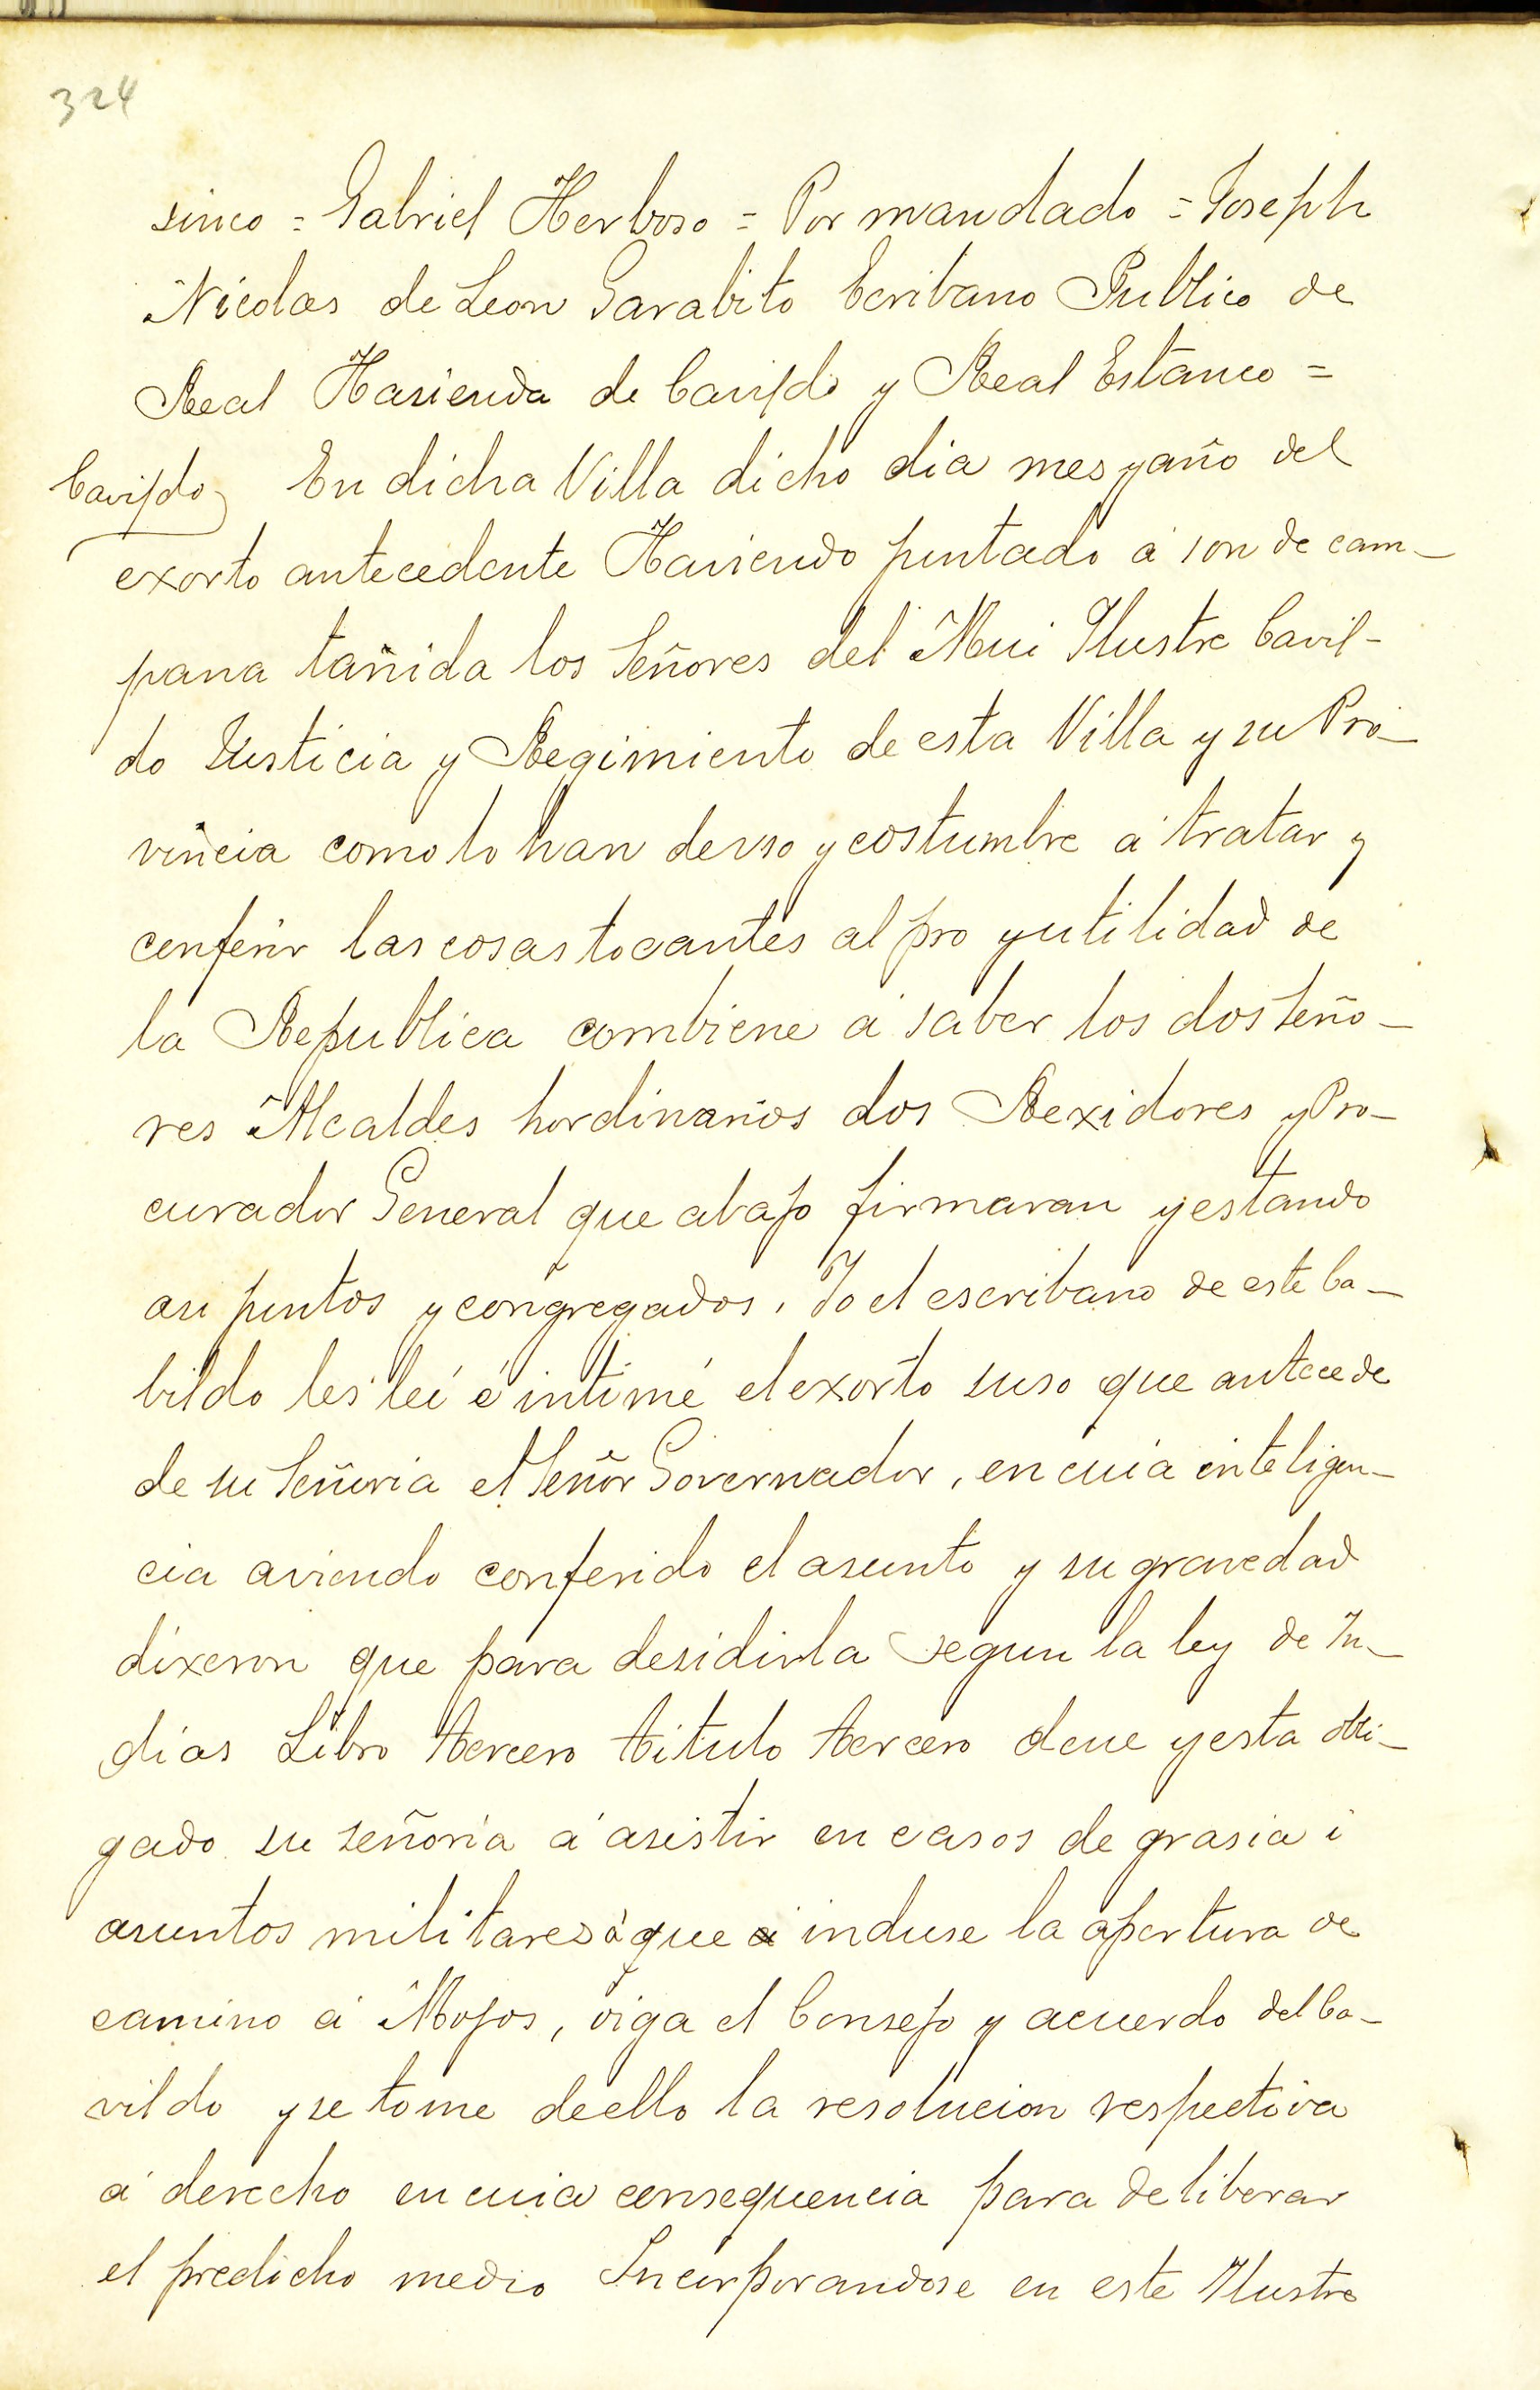 324
sinco = Gabriel Herboso = Por mandado = Joseph
Nicolas de Leon Garabito Ecribano Publico de
Real Hasienda de Cavildo y Real Estanco =
Cavildo En dicha Villa dicho dia mes y año del
exorto antecedente Haviendo juntado á son de cam-
pana tañida los Señores del Mui Ilustre Cavil-
do Justicia y Regimiento de esta Villa y su Pro-
vincia como lo han de uso y costumbre á tratar y
conferir las cosas tocantes al pro y utilidad de
la Republica combiene á saber los dos Seño-
res Alcaldes hordinarios dos Rexidores y Pro-
curador General que abajo firmaran y estando
asi juntos y congregados, Yo el escribano de este Ca-
bildo les leí é intimé el exorto suso que antecede
de su Señoria el Señor Governador, en cuia inteligen-
cia aviendo conferido el asunto y su gravedad
dixeron que para desidirla segun la ley de In-
dias Libro tercero titulo tercero deve y esta obli-
gado su señoria á asistir en casos de grasia i
asuntos militares á que induse la apertura de
camino á Mojos, oiga el Consejo y acuerdo del Ca-
vildo y se tome de ello la resolucion respectiva
á derecho en cuia consequencia para deliberar
el predicho medio Incorporandose en este Ilustre